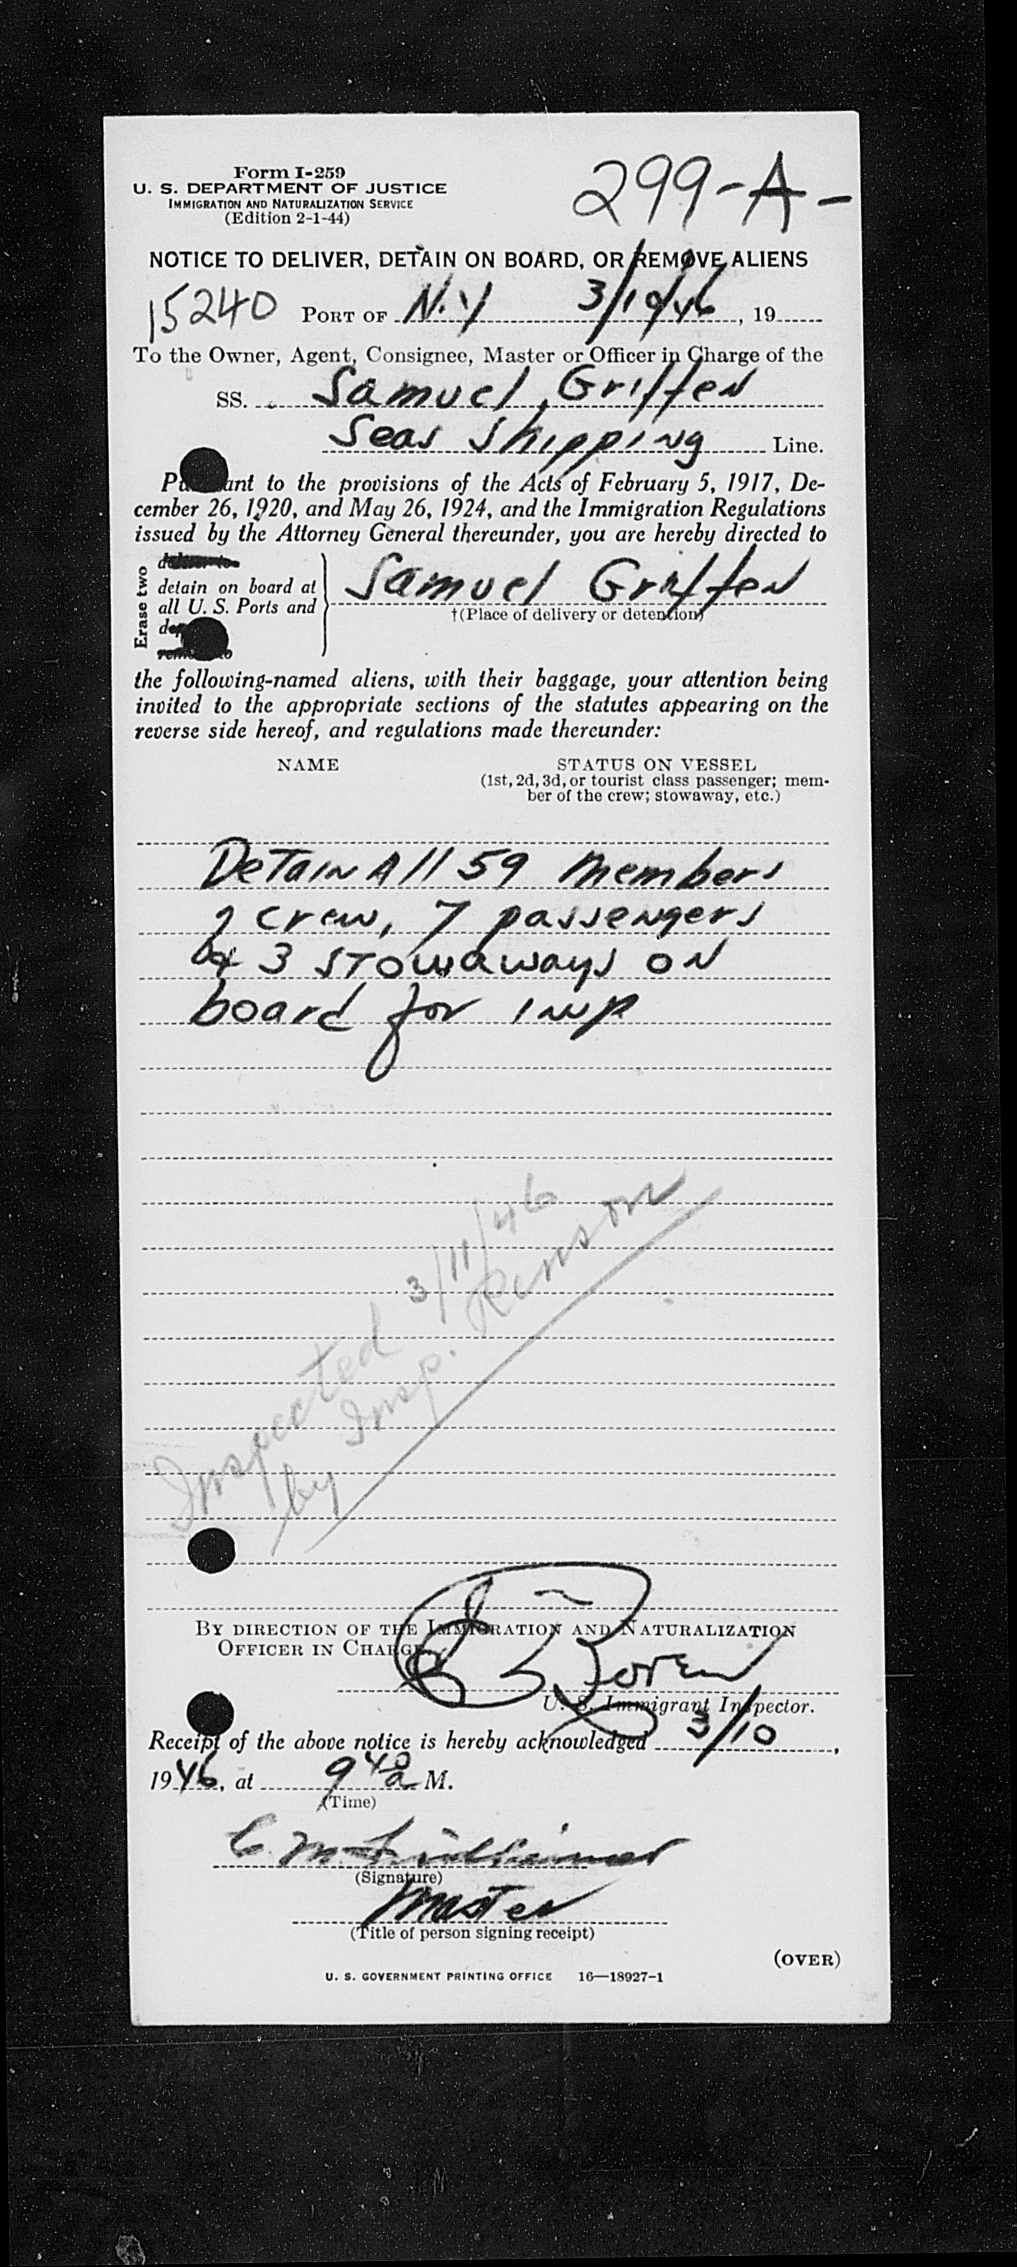 Form I-259
299-A-
U. S. DEPARTMENT OF JUSTICE
IMMIGRATION AND NATURALIZATION SERVICE
(Edition 2-1-44)
NOTICE TO DELIVER, DETAIN ON BOARD, OR REMOVE ALIENS
15240 PORT OF N.Y 3/10/46, 19
To the Owner, Agent, Consignee, Master or Officer in Charge of the
SS. Samuel Griffen
Seas Shipping Line.
Pursuant to the provisions of the Acts of February 5, 1917, De-
cember 26, 1920, and May 26, 1924, and the Immigration Regulations
issued by the Attorney General thereunder, you are hereby directed to
Erase two
deliver to
detain on board at
all U. S. Ports and
remove to
Samuel Griffen
†(Place of delivery or detention)
the following-named aliens, with their baggage, your attention being
invited to the appropriate sections of the statutes appearing on the
reverse side hereof, and regulations made thereunder:
NAME STATUS ON VESSEL
(1st, 2d, 3d, or tourist class passenger; mem-
ber of the crew; stowaway, etc.)
DeTain All 59 members
crew, 7 passengers
& 3 STowaways on
board for insp
Inspected 3/11/46
by Insp. Kinson
BY DIRECTION OF THE IMMIGRATION AND NATURALIZATION
OFFICER IN CHARGE
Boren
U. S. Immigrant Inspector.
Receipt of the above notice is hereby acknowledged 3/10,
1946, at 9 40 a M.
(Time)
C. M.
(Signature)
Master
(Title of person signing receipt)
(OVER)
U. S. GOVERNMENT PRINTING OFFICE 16—18927-1